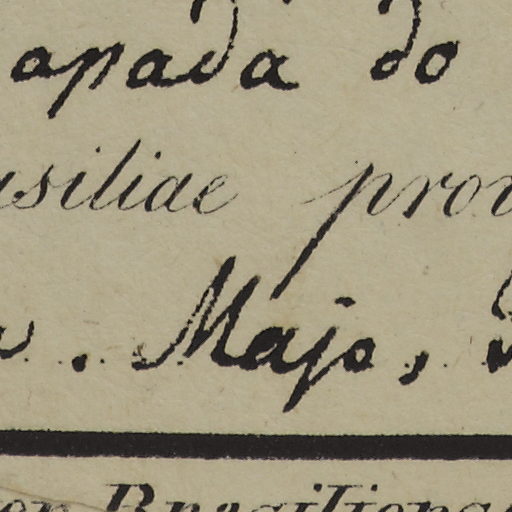 apada do
asiliae prov
. Majo,
er Brasiliens